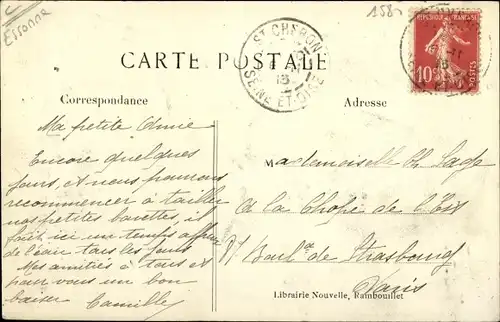 Essonne
158
CARTE POSTALE
ST CHERON
13
SEINE ET OISE
REPUBLIQUE FRANCAISE
10
POSTES
Correspondance
Adresse
Ma petite Amie
Encore quelques
jours, et nous pourrons
recommencer à tailler
nos petites bavettes, il
fait ici un temps affreux
de l'eau tous les jours
Mes amitiés à tous et
pour vous un bon
baiser Camille
Mademoiselle Ch.
à la Chope de l'Est
Boul. de Strasbourg
Paris
Librairie Nouvelle, Rambouillet